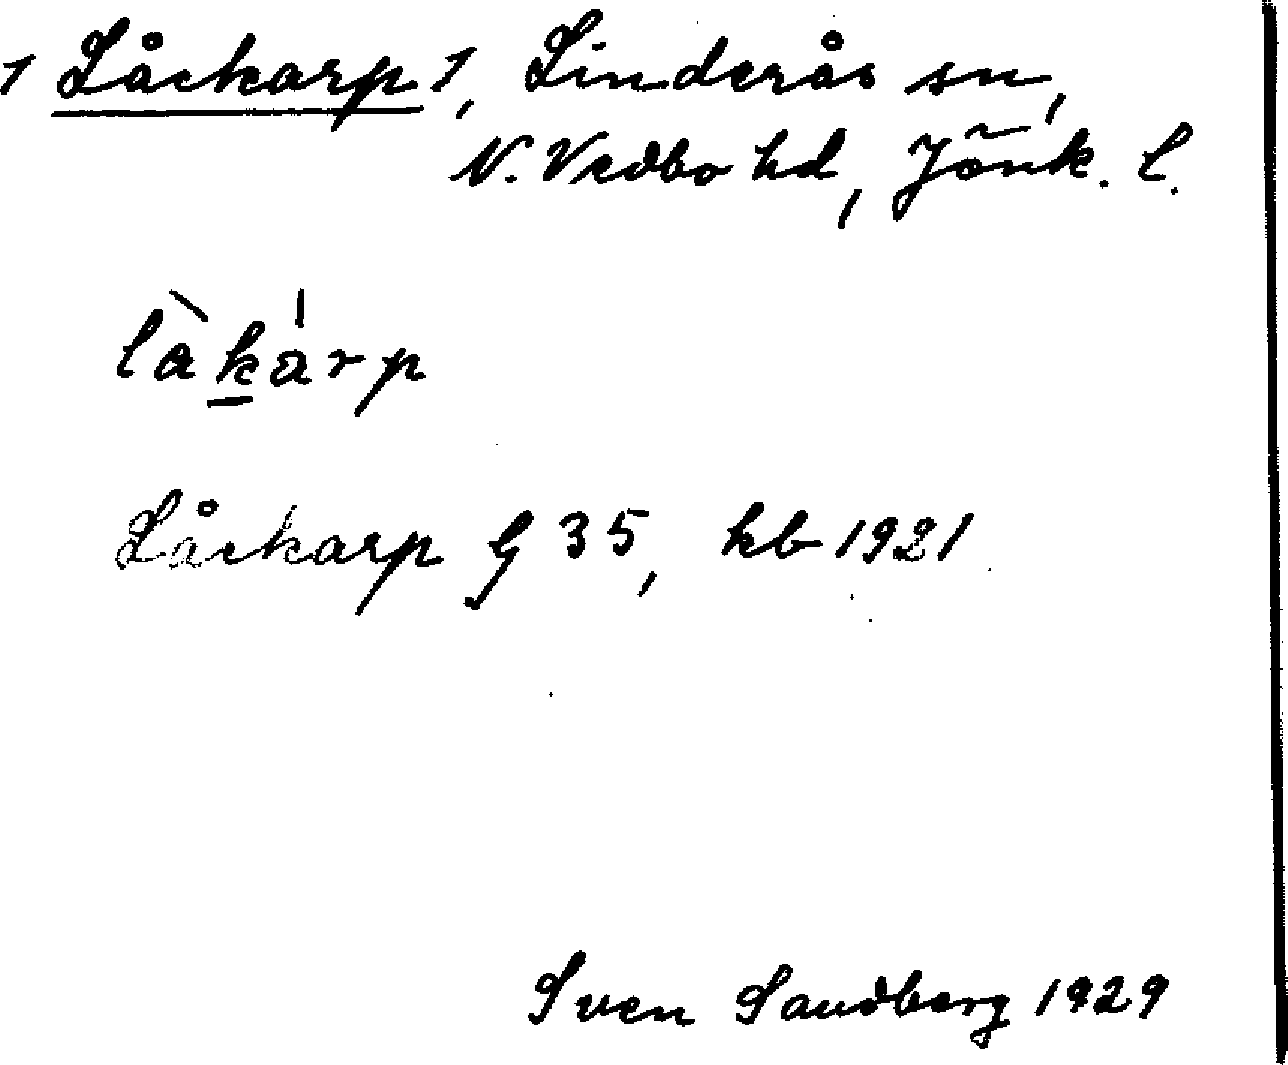 1 Låckarp 1, Linderås sn,
N. Vedbo hd, Jönk. l.
làkárp
Låckarp G 35, kb 1921
Sven Sandberg 1929